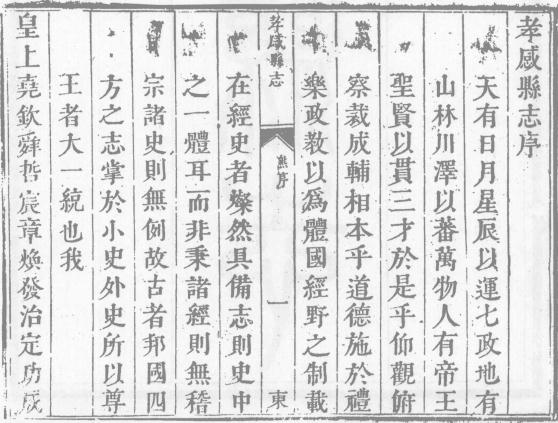 孝感縣志序
天有日月星辰以運七政地有
山林川澤以蕃萬物人有帝王
聖賢以貫三才於是乎仰觀俯
察裁成輔相本乎道德施於禮
樂政教以爲體國經野之制載
孝感縣志
熊序
一
東
在經史者燦然具備志則史中
之一體耳而非秉諸經則無稽
宗諸史則無例故古者邦國四
方之志掌於小史外史所以尊
王者大一統也我
皇上堯欽舜哲宸章煥發治定功成